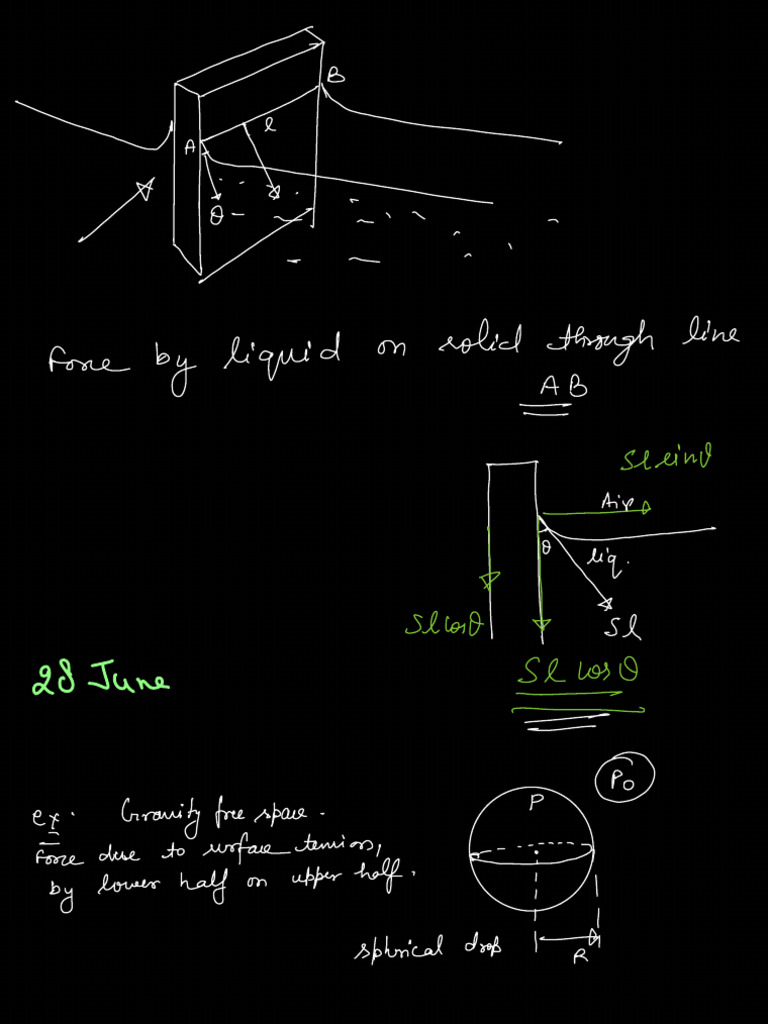 B
l
A
θ
Force by liquid on solid through line
AB
Sl sinθ
Air
θ
liq.
Sl cosθ
Sl
Sl cosθ
28 June
P0
P
ex. Gravity free space.
Force due to surface tension,
by lower half on upper half.
sphrical drop
R